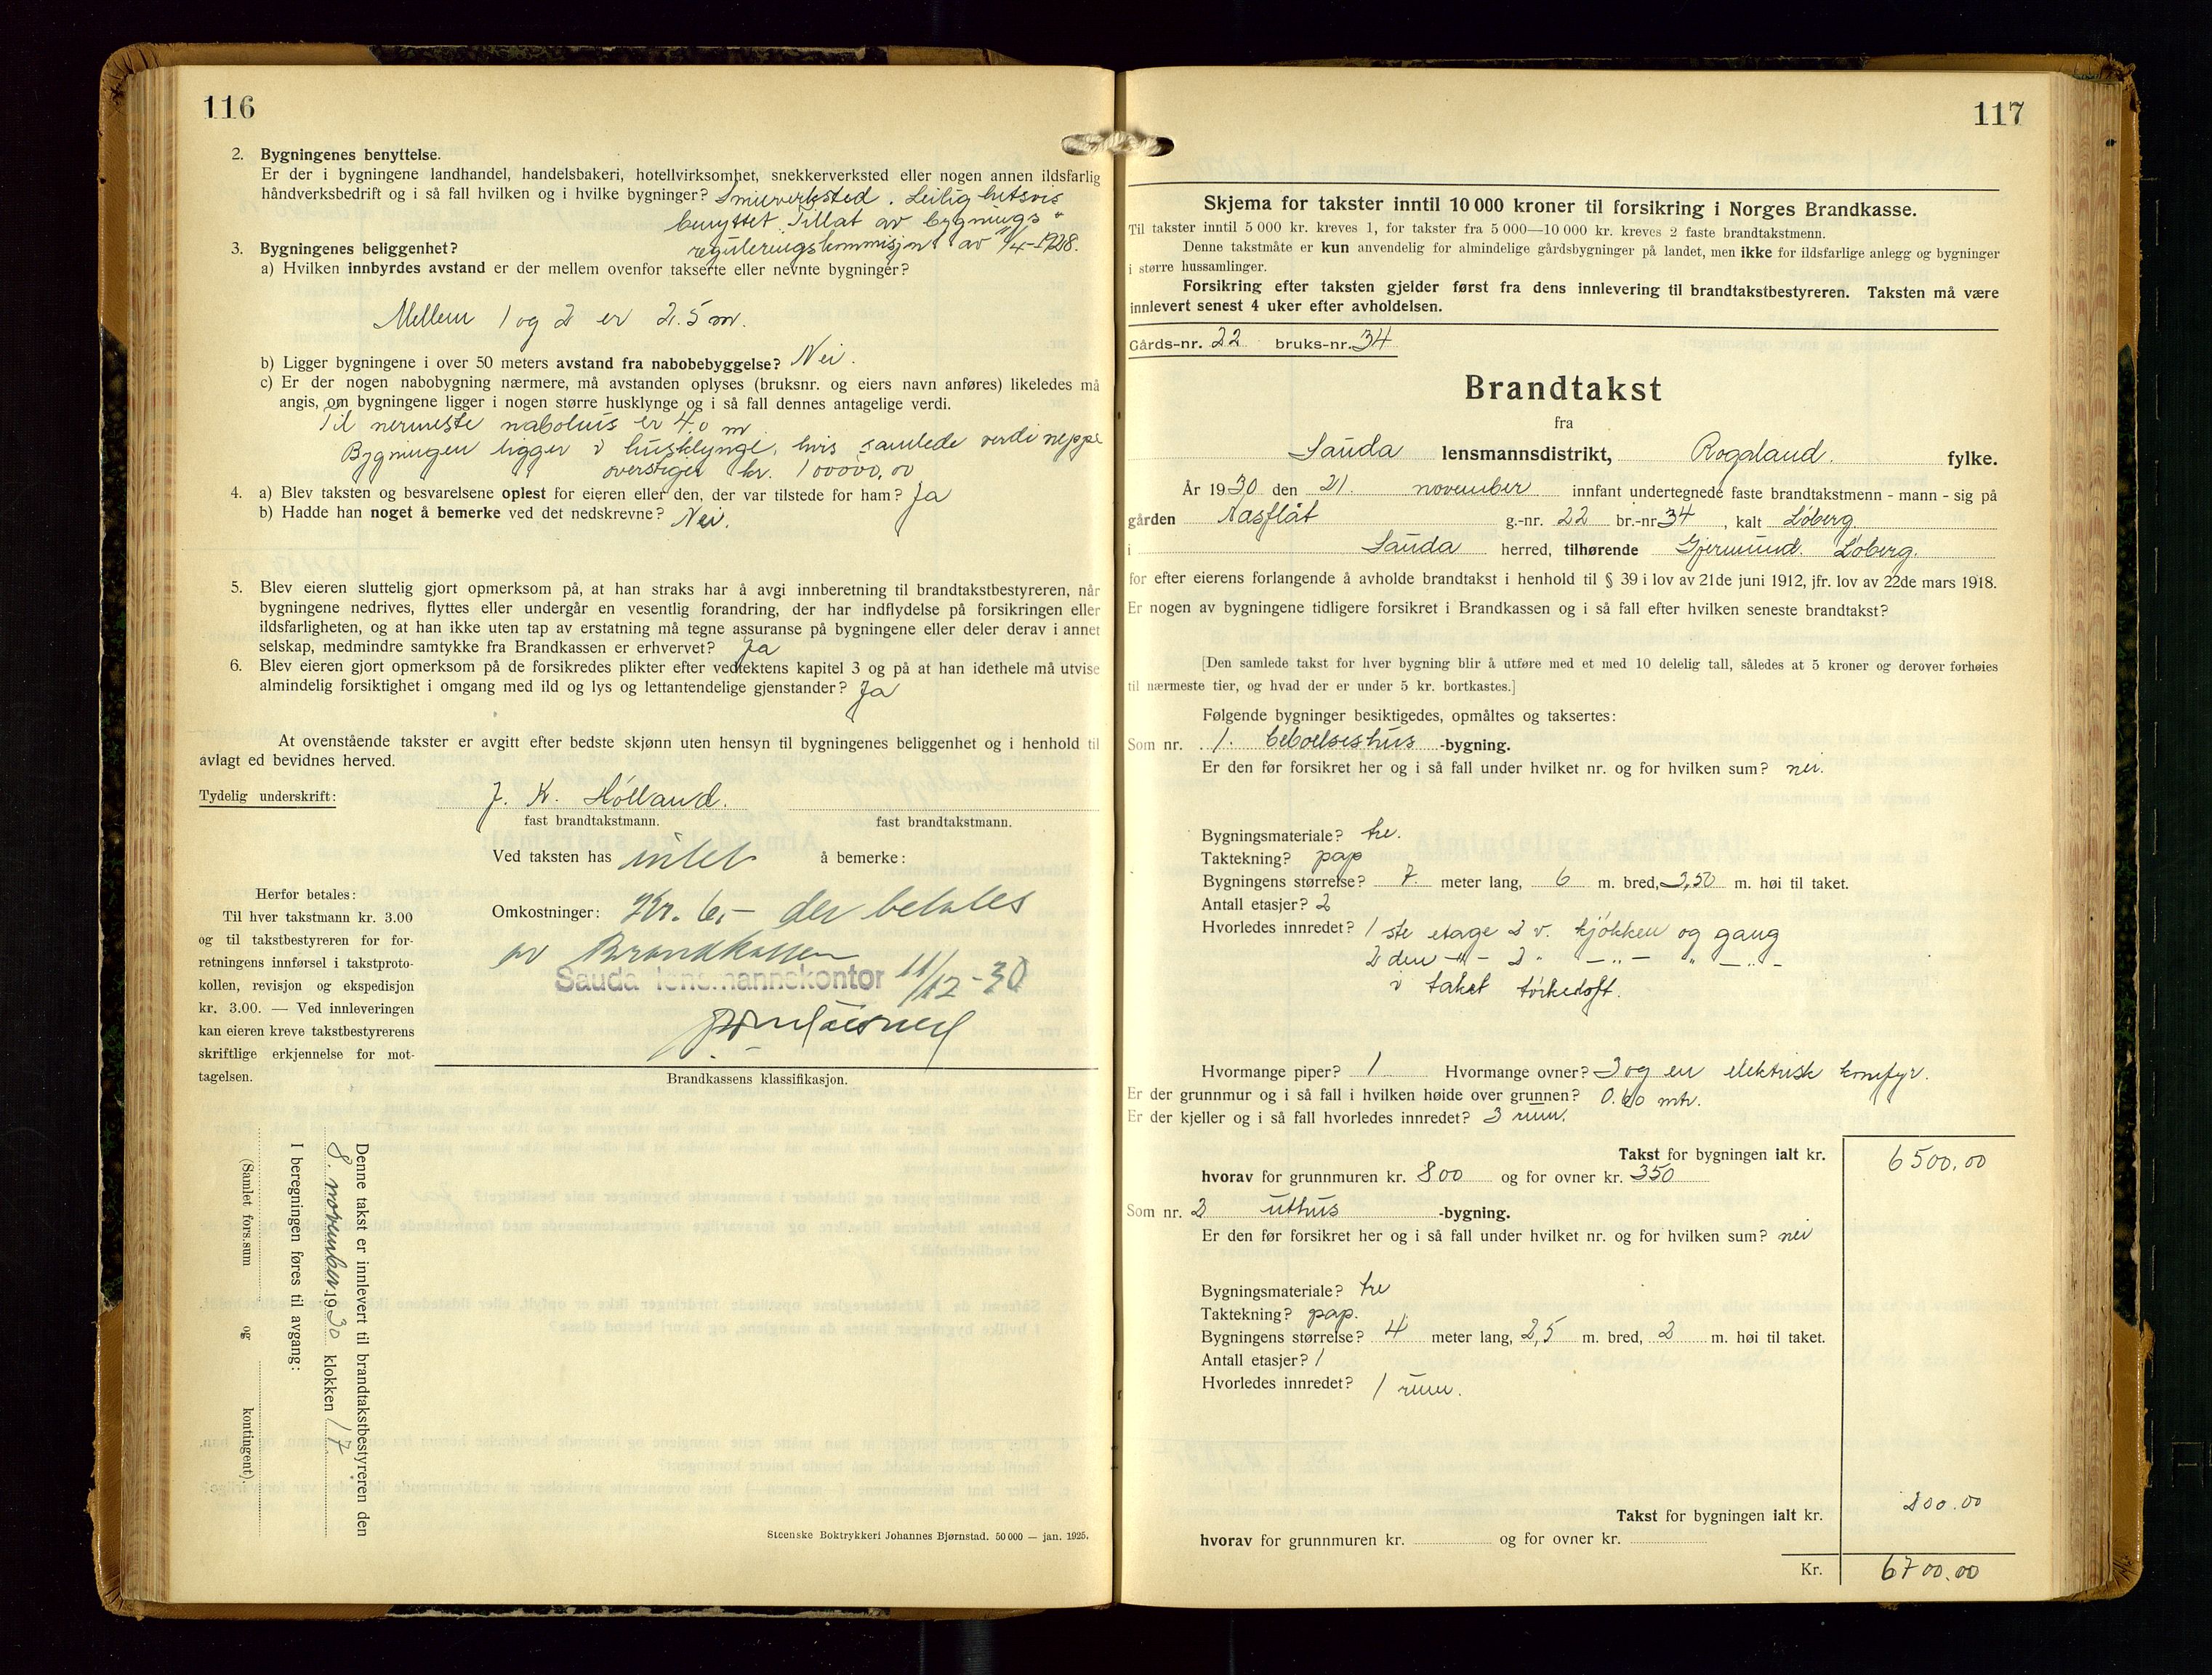 116
2. Bygningenes benyttelse.
Er der i bygningene landhandel, handelsbakeri, hotellvirksomhet, snekkerverksted eller nogen annen ildsfarlig
håndverksbedrift og i så fall hvilken og i hvilke bygninger? Smieverksted. Leilighetsvis
benyttet. Tillat av bygnings-
reguleringskommisjon av 11/4-1928.
3. Bygningenes beliggenhet?
a) Hvilken innbyrdes avstand er der mellem ovenfor takserte eller nevnte bygninger?
Mellem 1 og 2 er 2.5 m.
b) Ligger bygningene i over 50 meters avstand fra nabobebyggelse? Nei.
c) Er der nogen nabobygning nærmere, må avstanden oplyses (bruksnr. og eiers navn anføres) likeledes må
angis, om bygningene ligger i nogen større husklynge og i så fall dennes antagelige verdi.
Til nermeste nabohus er 4.0 m
Bygningen ligger i husklynge, hvis samlede verdi neppe
overstiger kr. 100000,00
4. a) Blev taksten og besvarelsene oplest for eieren eller den, der var tilstede for ham? Ja
b) Hadde han noget å bemerke ved det nedskrevne? Nei.
5. Blev eieren sluttelig gjort opmerksom på, at han straks har å avgi innberetning til brandtakstbestyreren, når
bygningene nedrives, flyttes eller undergår en vesentlig forandring, der har indflydelse på forsikringen eller
ildsfarligheten, og at han ikke uten tap av erstatning må tegne assuranse på bygningene eller deler derav i annet
selskap, medmindre samtykke fra Brandkassen er erhvervet? Ja
6. Blev eieren gjort opmerksom på de forsikredes plikter efter vedtektens kapitel 3 og på at han idethele må utvise
almindelig forsiktighet i omgang med ild og lys og lettantendelige gjenstander? Ja
At ovenstående takster er avgitt efter bedste skjønn uten hensyn til bygningenes beliggenhet og i henhold til
avlagt ed bevidnes herved.
Tydelig underskrift: J. K. Hólland.
fast brandtakstmann. fast brandtakstmann.
Ved taksten has intet å bemerke:
Omkostninger: Kr. 6,- der betales
av Brandkassen
Sauda lensmannskontor 11/12-30
Herfor betales:
Til hver takstmann kr. 3.00
og til takstbestyreren for for-
retningens innførsel i takstproto-
kollen, revisjon og ekspedisjon
kr. 3.00. — Ved innleveringen
kan eieren kreve takstbestyrerens
skriftlige erkjennelse for mot-
tagelsen.
Brandkassens klassifikasjon.
Denne takst er innlevert til brandtakstbestyreren den
8. november 1930 klokken 17
I beregningen føres til avgang:
(Samlet fors.sum og kontingent).
Steenske Boktrykkeri Johannes Bjørnstad. 50 000 — jan. 1925.
117
Skjema for takster inntil 10 000 kroner til forsikring i Norges Brandkasse.
Til takster inntil 5 000 kr. kreves 1, for takster fra 5 000—10 000 kr. kreves 2 faste brandtakstmenn.
Denne takstmåte er kun anvendelig for almindelige gårdsbygninger på landet, men ikke for ildsfarlige anlegg og bygninger
i større hussamlinger.
Forsikring efter taksten gjelder først fra dens innlevering til brandtakstbestyreren. Taksten må være
innlevert senest 4 uker efter avholdelsen.
Gårds-nr. 22 bruks-nr. 34
Brandtakst
fra
Sauda lensmannsdistrikt, Rogaland. fylke.
År 1930 den 21. november innfant undertegnede faste brandtakstmenn - mann - sig på
gården Aasflåt g.-nr. 22 br.-nr 34, kalt Lóberg
i Sauda herred, tilhørende Gjermund Lóberg.
for efter eierens forlangende å avholde brandtakst i henhold til § 39 i lov av 21de juni 1912, jfr. lov av 22de mars 1918.
Er nogen av bygningene tidligere forsikret i Brandkassen og i så fall efter hvilken seneste brandtakst?
[Den samlede takst for hver bygning blir å utføre med et med 10 delelig tall, således at 5 kroner og derover forhøies
til nærmeste tier, og hvad der er under 5 kr. bortkastes.]
Følgende bygninger besiktigedes, opmåltes og taksertes:
Som nr. 1. beboelseshus -bygning.
Er den før forsikret her og i så fall under hvilket nr. og for hvilken sum? nei.
Bygningsmateriale? tre.
Taktekning? pap
Bygningens størrelse? 7 meter lang, 6 m. bred, 3,50 m. høi til taket.
Antall etasjer? 2
Hvorledes innredet? 1 ste etage 2 v. kjókken og gang
2 den -"- 2 " -"- " -"-
i taket tórkeloft.
Hvormange piper? 1 Hvormange ovner? 3 og en elektrisk komfyr.
Er der grunnmur og i så fall i hvilken høide over grunnen? 0.60 mtr.
Er der kjeller og i så fall hvorledes innredet? 3 rum.
Takst for bygningen ialt kr. 6500.00
hvorav for grunnmuren kr. 800 og for ovner kr. 350
Som nr. 2 uthus -bygning.
Er den før forsikret her og i så fall under hvilket nr. og for hvilken sum? nei
Bygningsmateriale? tre
Taktekning? pap.
Bygningens størrelse? 4 meter lang, 2,5 m. bred, 2 m. høi til taket.
Antall etasjer? 1
Hvorledes innredet? 1 rum.
Takst for bygningen ialt kr. 200.00
hvorav for grunnmuren kr. og for ovner kr.
Kr. 6700.00